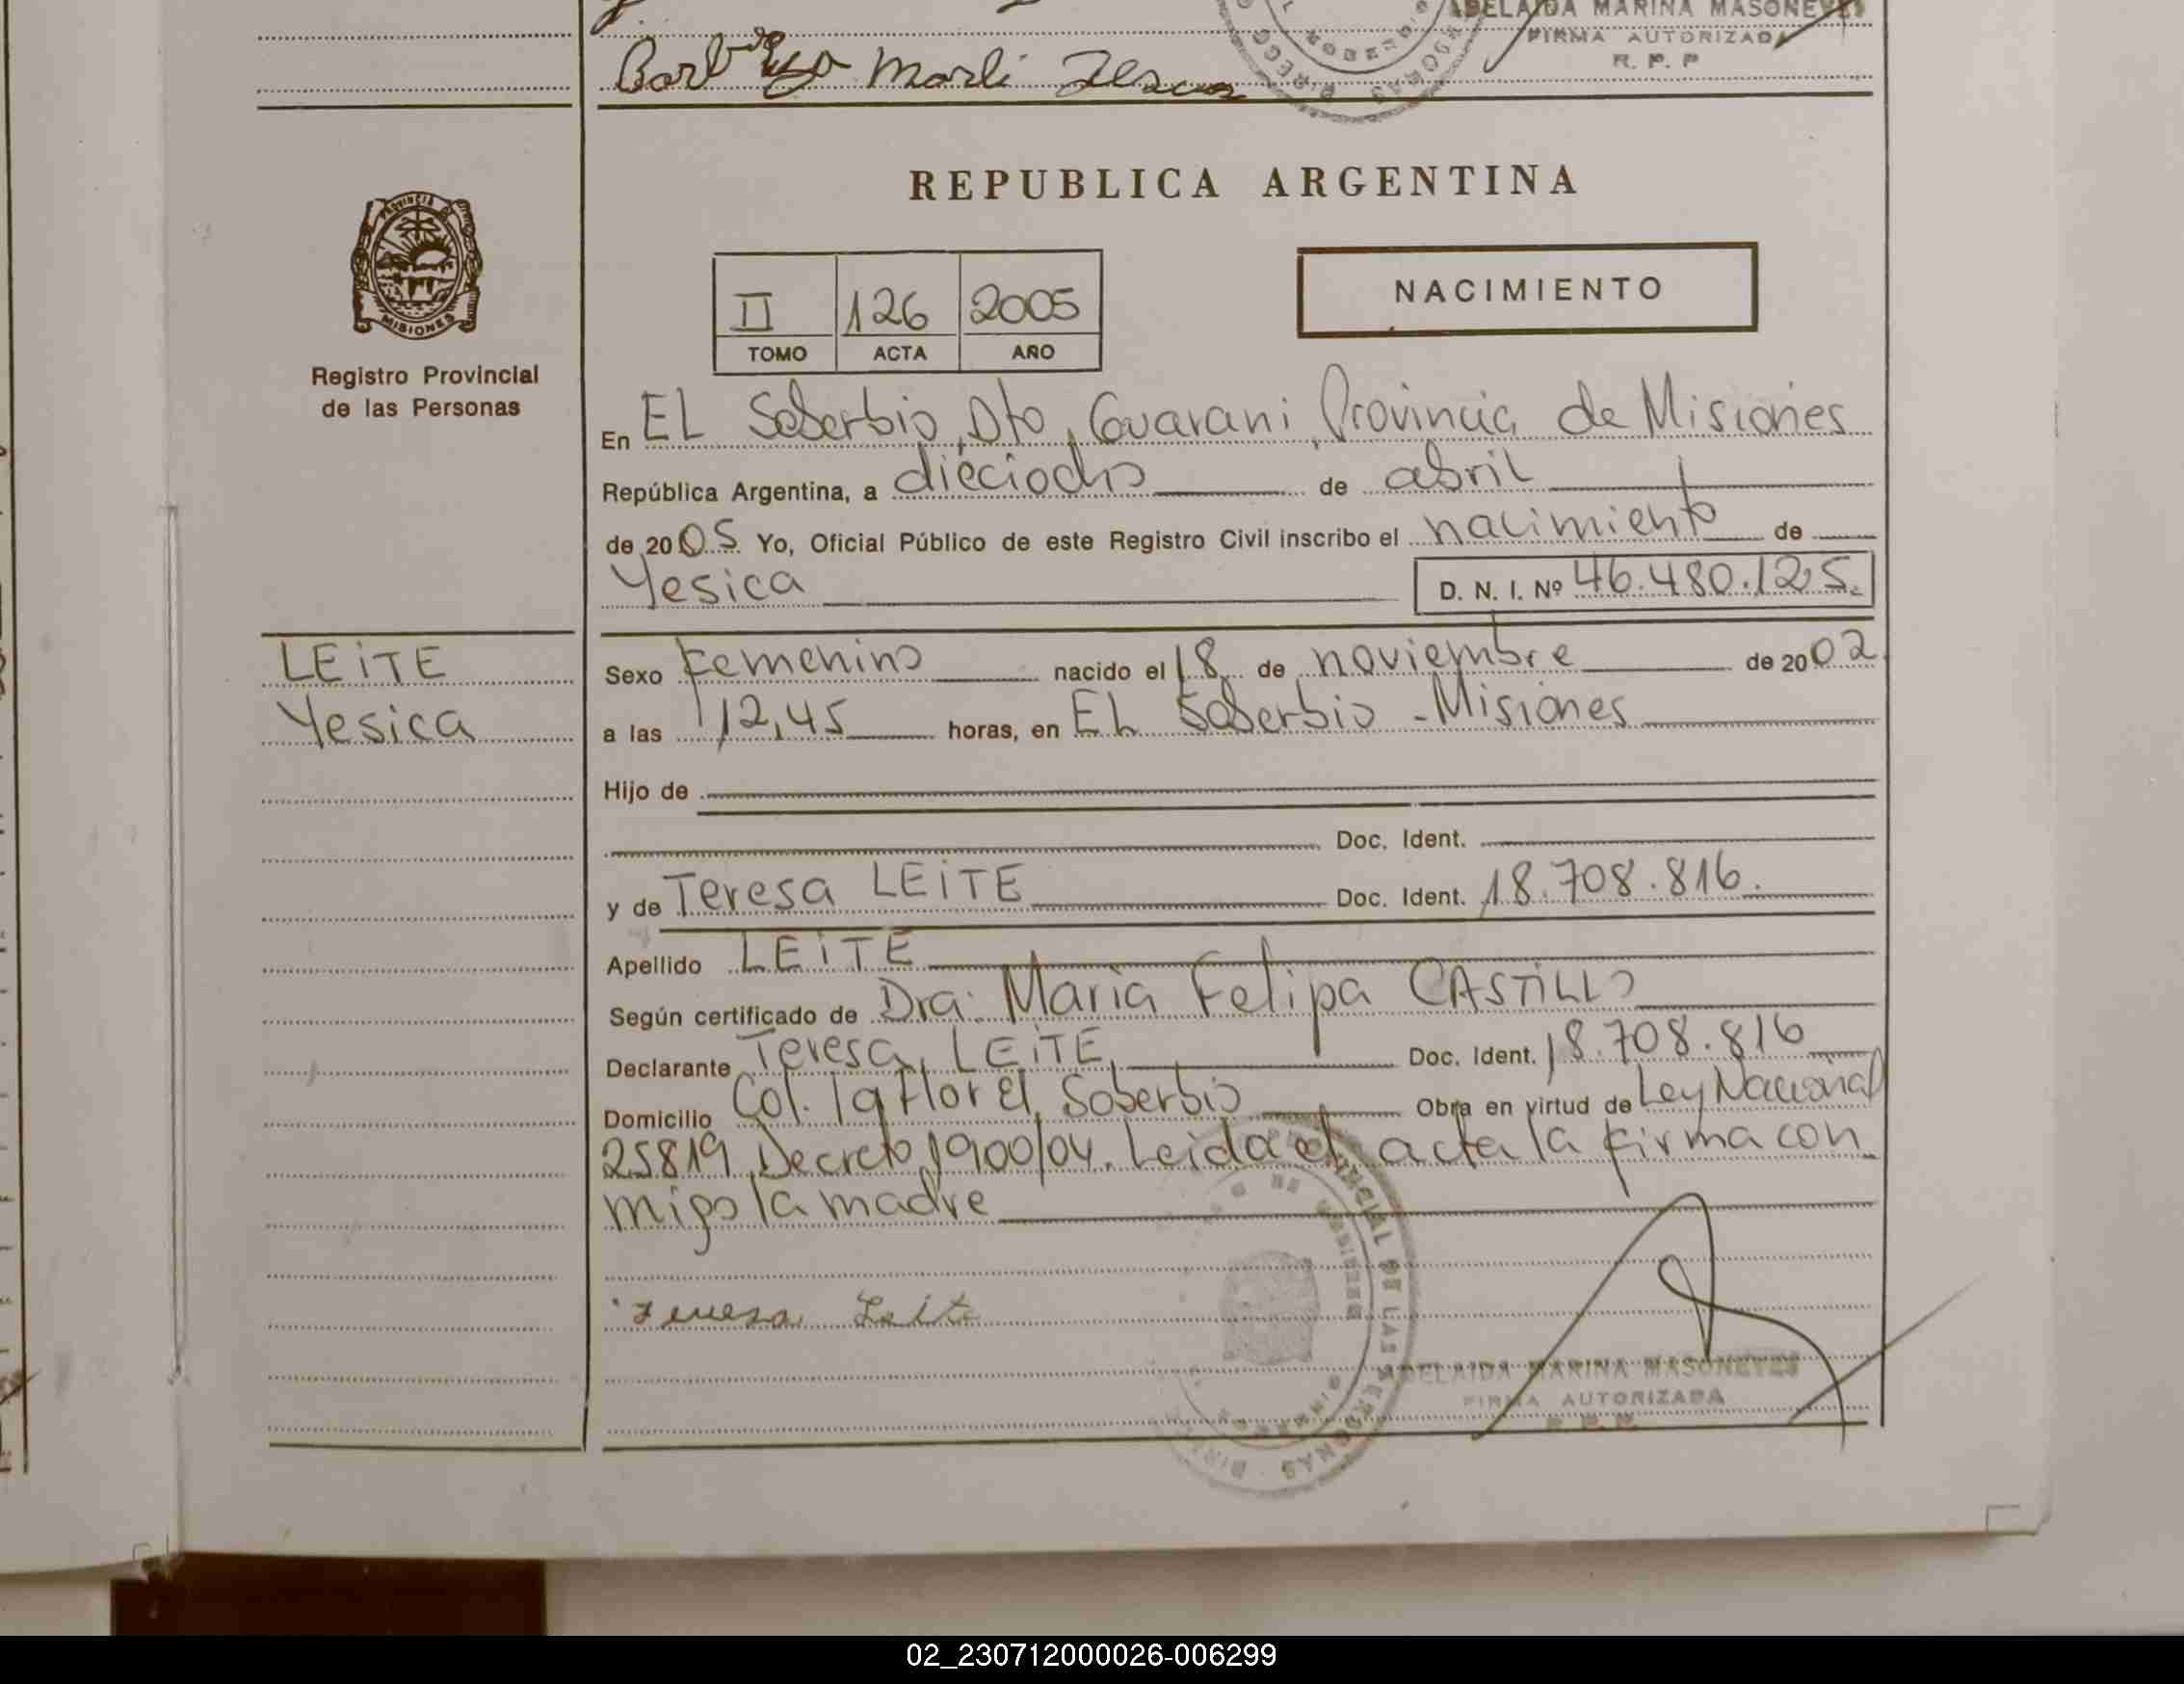 ADELAIDA MARINA MASONEVES
FIRMA AUTORIZADA
R. P. P
Marli
REPUBLICA ARGENTINA
PROVINCIA DE
MISIONES
Registro Provincial
de las Personas
II 126 2005
TOMO ACTA AÑO
NACIMIENTO
En EL Soberbio, Dto, Guarani, Provincia de Misiones
República Argentina, a dieciocho de abril
de 2005 Yo, Oficial Público de este Registro Civil inscribo el nacimiento de
Yesica D. N. I. Nº 46.480.125.
LEITE
Yesica
Sexo Femenino nacido el 18 de noviembre de 2002
a las 12,45 horas, en EL Soberbio - Misiones
Hijo de
Doc. Ident.
y de Teresa LEITE Doc. Ident. 18.708.816.
Apellido LEITE
Según certificado de Dra. Maria Felipa CASTILLO
Declarante Teresa LEITE Doc. Ident. 18.708.816
Domicilio Col. la Flor El Soberbio Obra en virtud de Ley Nacional
25819 Decreto 1900/04. Leida el acta la firma con
migo la madre
Teresa Leite
PROVINCIAL DE LAS PERSONAS
MISIONES
ADELAIDA MARINA MASONEVES
FIRMA AUTORIZADA
R. P. P.
02_230712000026-006299